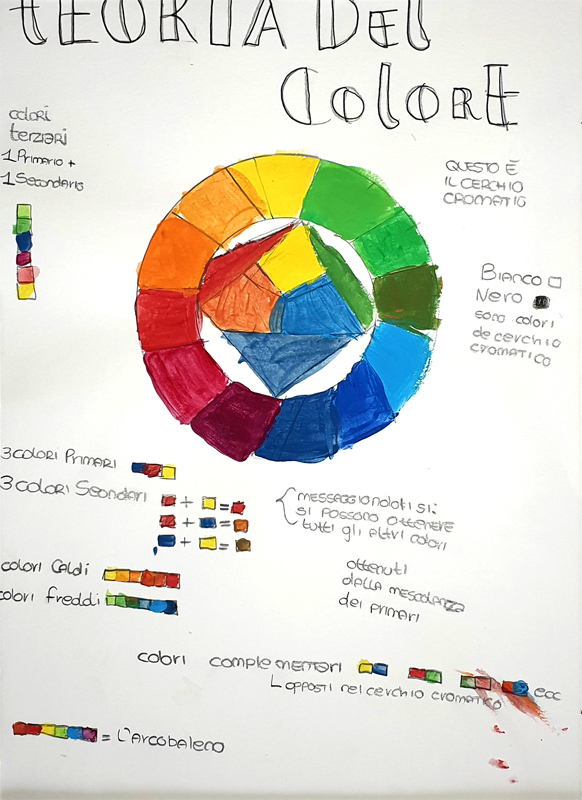 TEORIA DEL
COLORE
colori
terziari
1 Primario +
1 Secondario
QUESTO È
IL CERCHIO
CROMATIC
BIANCO
NERO
sono colori
de cerchio
cromatico
3 COLORI PRIMARI
3 COLORI SECONDARI
+ =
+ =
+ =
MESSAGGIONDLOTI SI:
SI POSSONO OTTENERE
tutti gli altri colori
colori Caldi
colori freddi
ottenuti
dalla mescolanza
dei primari
colori complementari ecc
L opposti nel cerchio cromatico
= L'ARCOBALENO